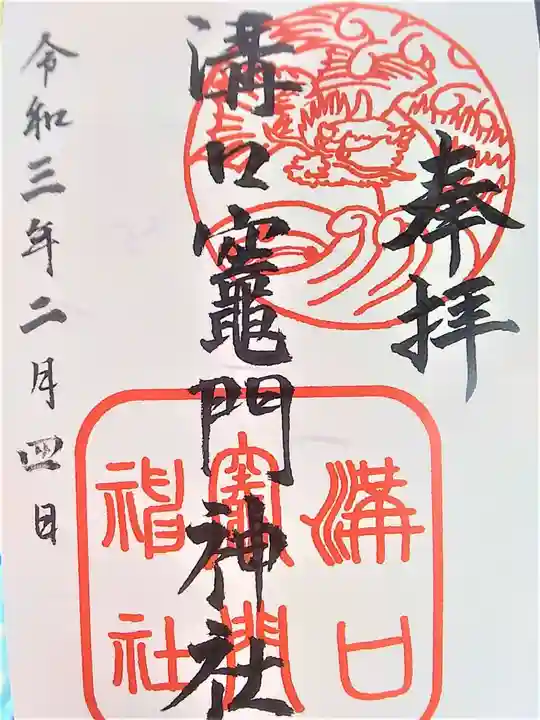 奉拝
溝口竈門神社
令和三年二月四日
溝口
竈門
神社